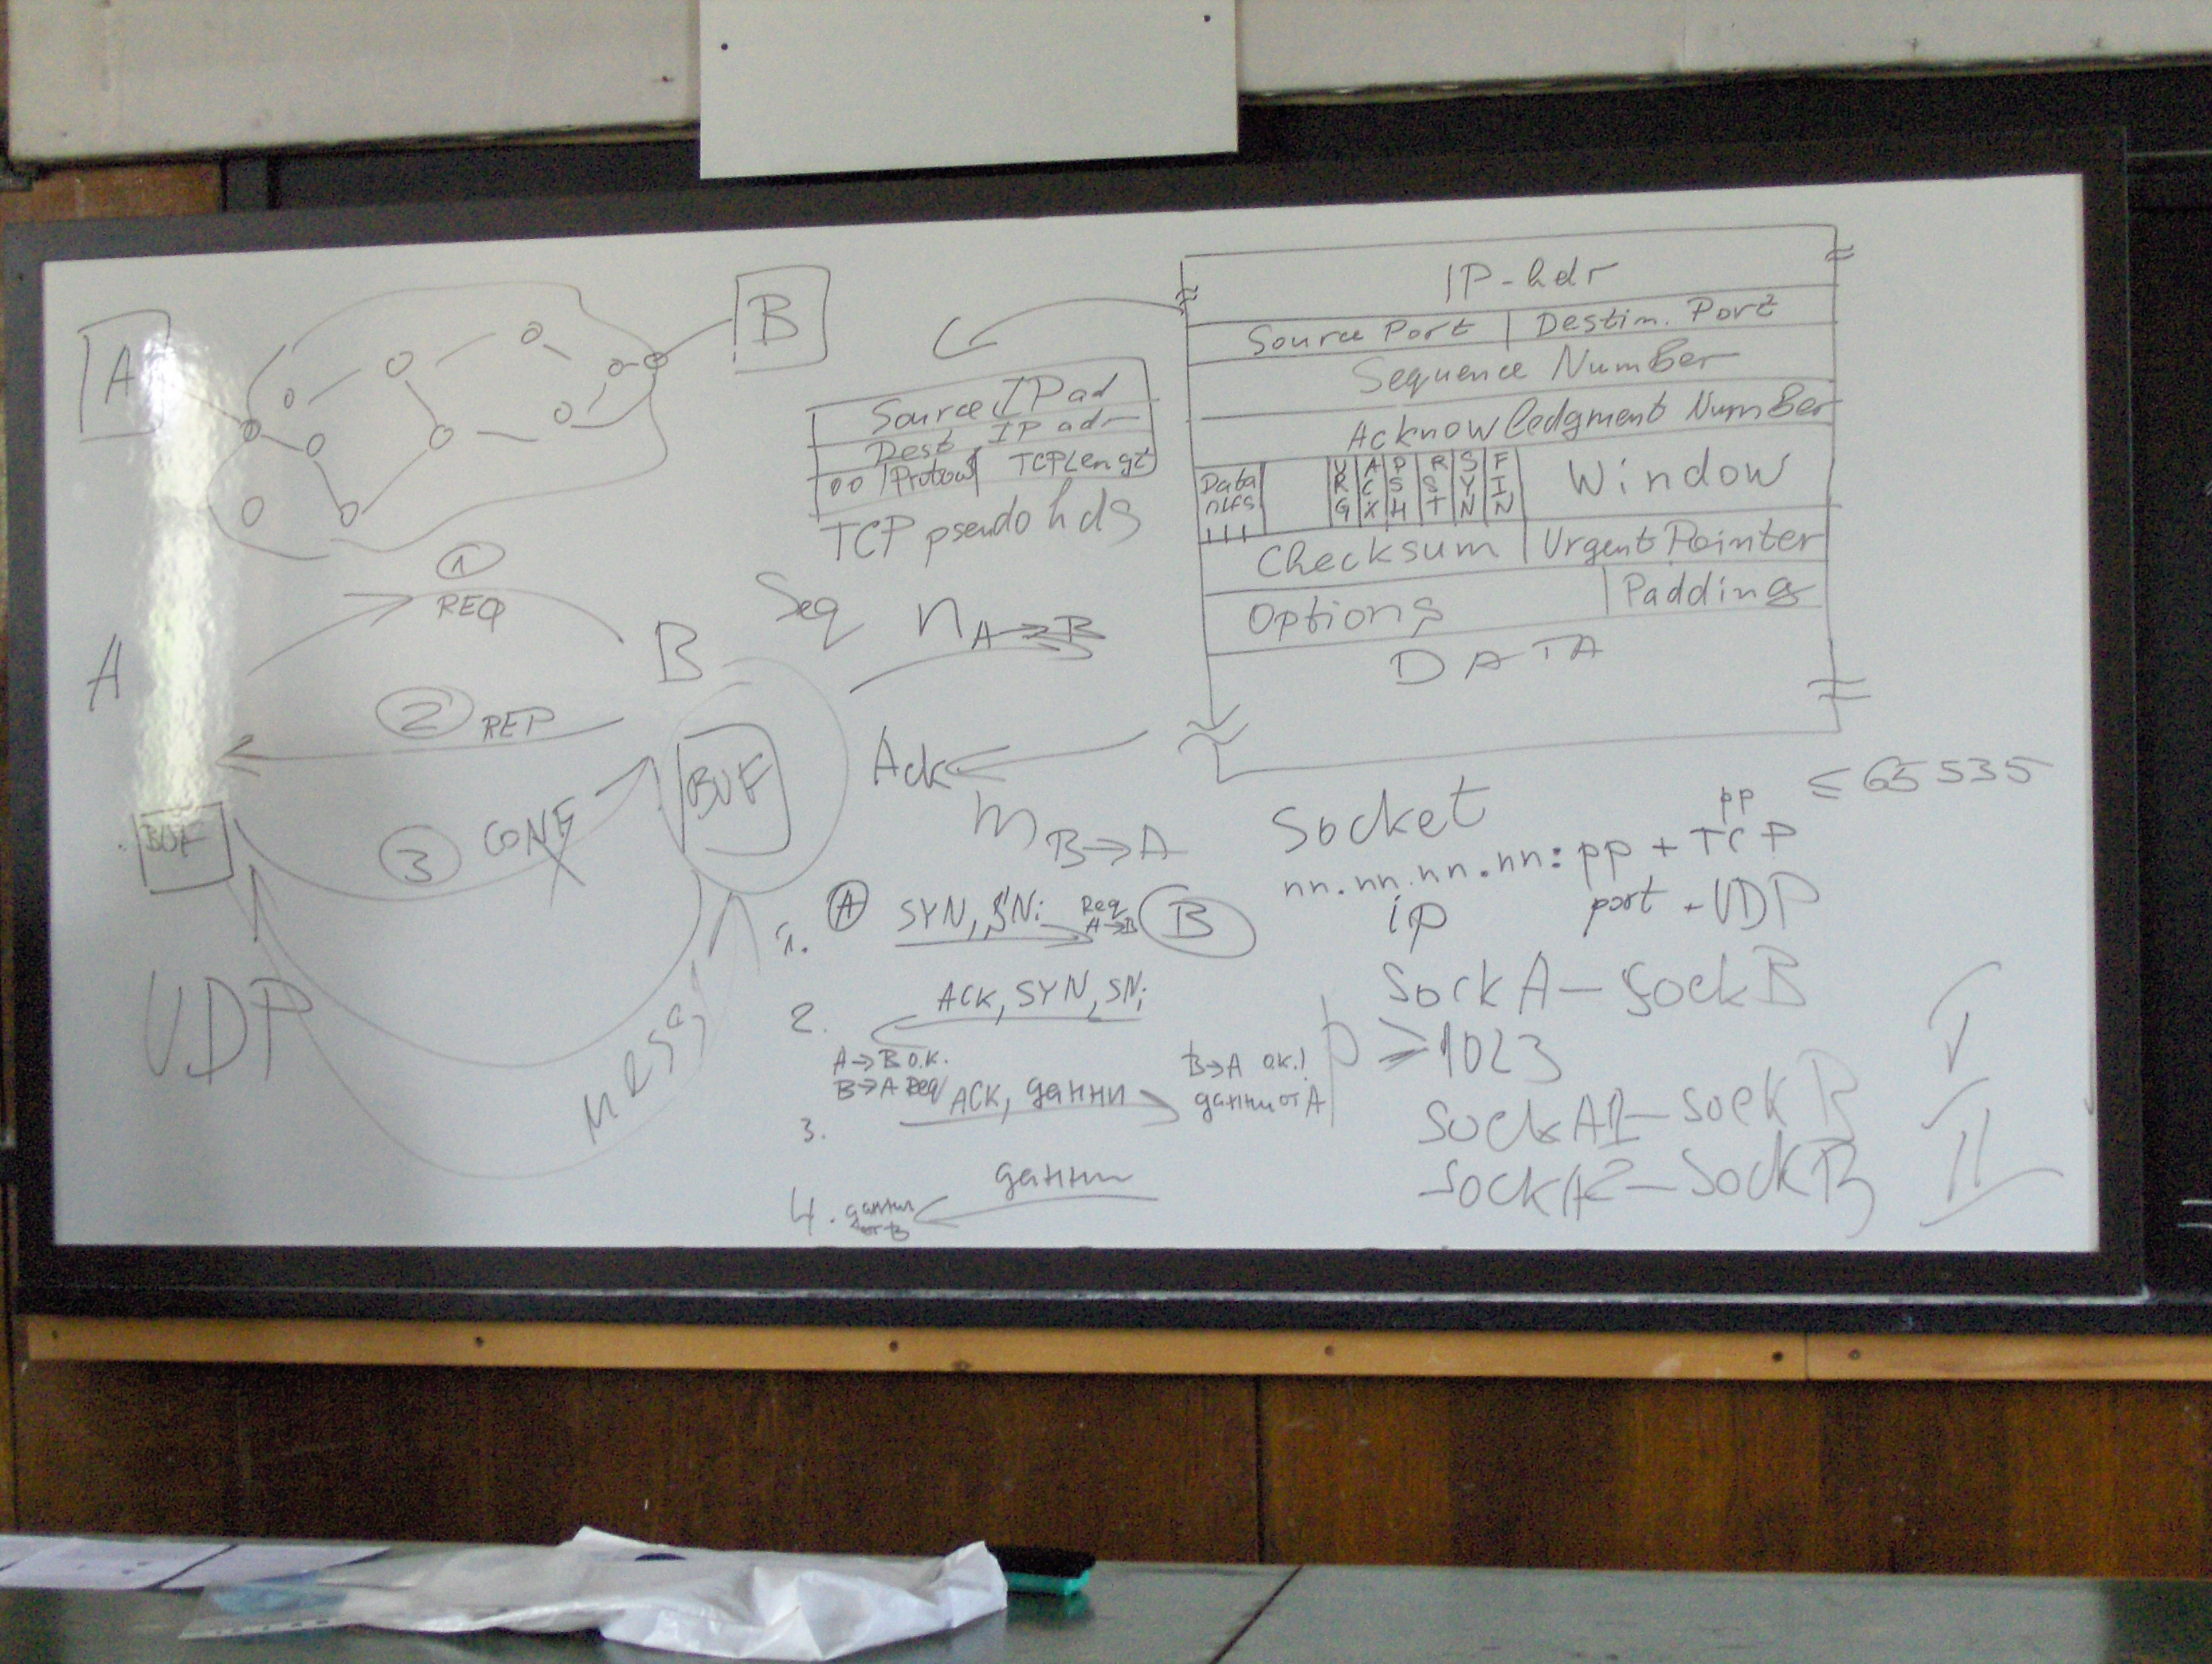 A
B
① REQ
A
B
② REP
BUF
BUF
③ CONF
UDP
mess
Source IP ad
Dest IP adr
00 Protocol TCP Lengt
TCP pseudo hdg
Seq n A→B
Ack
m B→A
1. A SYN, SNi Req A→B B
2. ACK, SYN, SNj
A→B O.K.
B→A Req
B→A O.K.!
3. ACK, данни
данни от A
4. данни
данни от B
IP-hdr
Source Port Destin. Port
Sequence Number
Acknowledgment Number
Data URG ACK PSH RST SYN FIN Window
Checksum Urgent Pointer
Options Padding
DATA
pp ≤ 65535
Socket
nn.nn.nn.nn:pp + TCP
ip port - UDP
Sock A - Sock B
p ≥ 1023
I
Sock A1 - Sock B
Sock A2 - Sock B
II